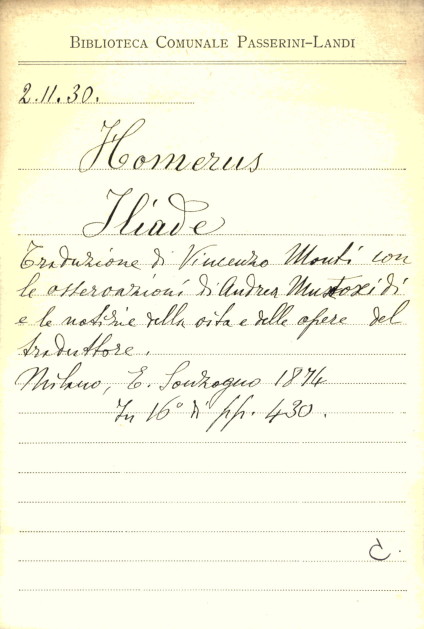 BIBLIOTECA COMUNALE PASSERINI-LANDI
2.11.30.
Homerus
Iliade
Traduzione di Vincenzo Monti con
le osservazioni di Andrea Mustoxidi
e le notizie della vita e delle opere del
traduttore.
Milano, E. Sonzogno 1874
In 16° di pp. 430.
C.